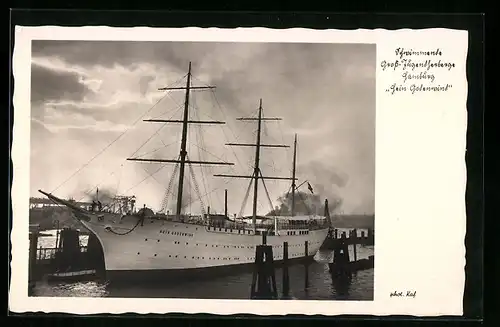 Schwimmende
Groß-Jugendherberge
Hamburg
„Hein Godenwind“
HEIN GODENWIND
phot. Kaf